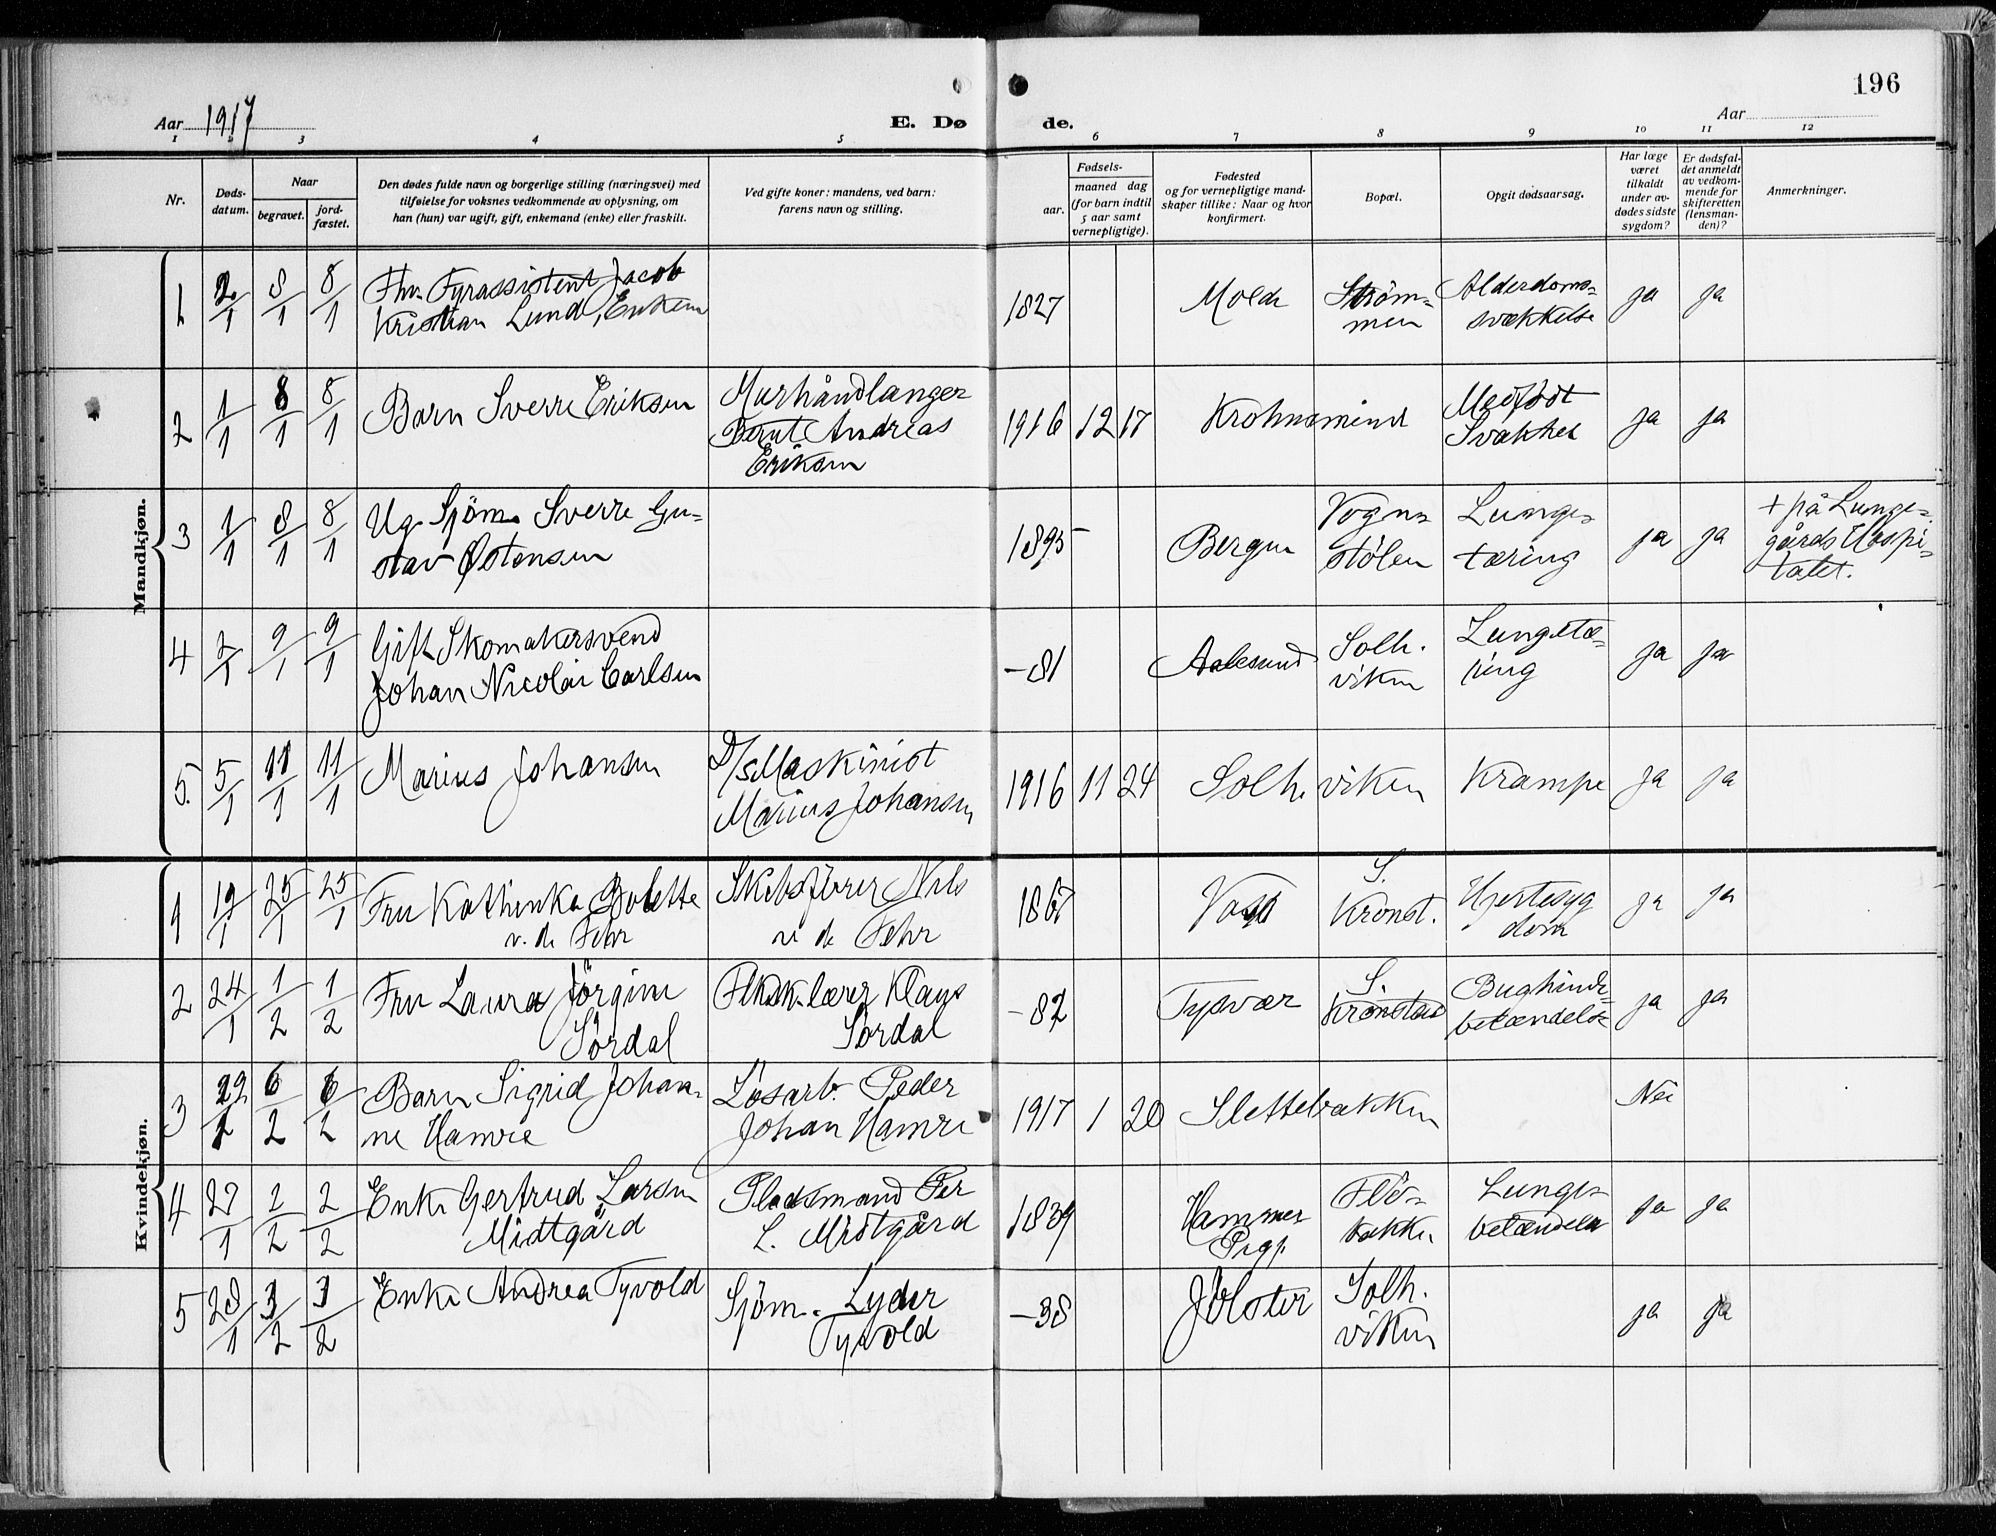 196
Aar 1917
E. Dø
de.
Aar
1 2 3 4 5 6 7 8 9 10 11 12
Nr.
Døds-
datum.
Naar
begravet.
jord-
fæstet.
Den dødes fulde navn og borgerlige stilling (næringsvei) med
tilføielse for voksnes vedkommende av oplysning, om
han (hun) var ugift, gift, enkemand (enke) eller fraskilt.
Ved gifte koner: mandens, ved barn:
farens navn og stilling.
Fødsels-
aar.
maaned dag
(for barn indtil
5 aar samt
vernepligtige).
Fødested
og for vernepligtige mand-
skaper tillike: Naar og hvor
konfirmert.
Bopæl.
Opgit dødsaarsag.
Har læge
været
tilkaldt
under av-
dødes sidste
sygdom?
Er dødsfal-
det anmeldt
av vedkom-
mende for
skifteretten
(lensman-
den)?
Anmerkninger.
Mandkjøn.
1 2/1 8/1 8/1
Fhv. Fyrassistent Jacob
Kristian Lund, Enkem
1827 Molde
Strøm-
men
Alderdoms-
svækkelse
ja ja
2 1/1 8/1 8/1
Barn Sverre Eriksen
Murhåndlanger
Bernt Andreas
Eriksen
1916 12 17 Krohnsminde
Medfødt
Svakhet
ja ja
3 1/1 8/1 8/1
Ug. Sjöm. Sverre Gu-
stav Østensen
1895 Bergen
Vogn-
stölen
Lunge-
tæring
ja ja
+ på Lunge-
gårds Hospi-
talet.
4 2/1 9/1 9/1
Gift Skomakersvend
Johan Nicolai Carlsen
-81 Aalesund
Solh.
viken
Lungetæ-
ring
ja ja
5. 5/1 11/1 11/1
Marius Johansen
D/s Maskinist
Marius Johansen
1916 11 24 Solh.viken Krampe ja ja
Kvindekjøn.
1 19/1 25/1 25/1
Fru Kathinka Bolette
v. de Fehr
Skibsfører Nils
v. de Fehr
1867
S.
Kronst.
Hjertesyg
dom
ja ja
2 24/1 1/2 1/2
Fru Laura Jörgine
Sördal
Flksk. lærer Klaus
Sördal
-82 Tysvær
S.
Kronstad
Bughinde-
betændelse
ja ja
3 6/2 6/2
Barn Sigrid Johan-
ne Hamre
Lösarb. Peder
Johan Hamre
1917 1 20 Slettebakken Nei
4 27/1 2/2 2/2
Enke Gertrud Larsen
Midtgård
Pladsmand Per
L. Midtgård
1839
Hammer
Prgj.
Flö-
bakke.
Lunge-
betændelse
ja ja
5 28/1 3/2 3/2
Enke Andrea Tyvold
Sjöm. Lyder
Tyvold
-38 Jölster
Solh.
viken
ja ja